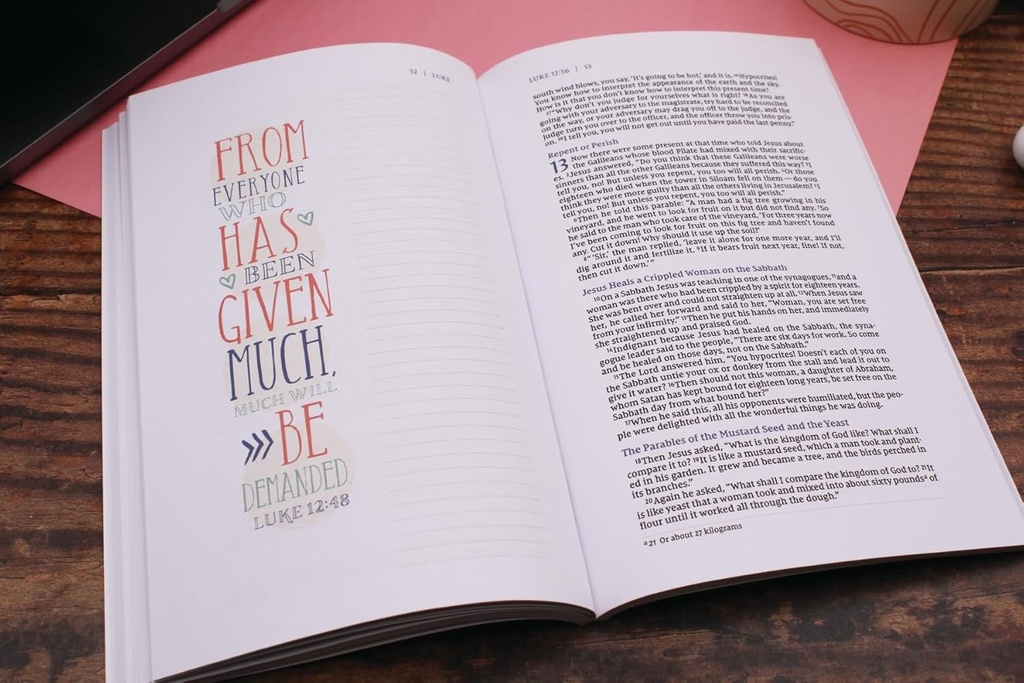 52 | LUKE
FROM
EVERYONE
WHO
HAS
BEEN
GIVEN
MUCH,
MUCH WILL
BE
DEMANDED
LUKE 12:48
LUKE 12:56 | 53
south wind blows, you say, ‘It’s going to be hot,’ and it is. 56Hypocrites!
You know how to interpret the appearance of the earth and the sky.
How is it that you don’t know how to interpret this present time?
57“Why don’t you judge for yourselves what is right? 58As you are
going with your adversary to the magistrate, try hard to be reconciled
on the way, or your adversary may drag you off to the judge, and the
judge turn you over to the officer, and the officer throw you into pris-
on. 59I tell you, you will not get out until you have paid the last penny.”
Repent or Perish
13 Now there were some present at that time who told Jesus about
the Galileans whose blood Pilate had mixed with their sacrific-
es. 2Jesus answered, “Do you think that these Galileans were worse
sinners than all the other Galileans because they suffered this way? 3I
tell you, no! But unless you repent, you too will all perish. 4Or those
eighteen who died when the tower in Siloam fell on them — do you
think they were more guilty than all the others living in Jerusalem? 5I
tell you, no! But unless you repent, you too will all perish.”
6Then he told this parable: “A man had a fig tree growing in his
vineyard, and he went to look for fruit on it but did not find any. 7So
he said to the man who took care of the vineyard, ‘For three years now
I’ve been coming to look for fruit on this fig tree and haven’t found
any. Cut it down! Why should it use up the soil?’
8“‘Sir,’ the man replied, ‘leave it alone for one more year, and I’ll
dig around it and fertilize it. 9If it bears fruit next year, fine! If not,
then cut it down.’”
Jesus Heals a Crippled Woman on the Sabbath
10On a Sabbath Jesus was teaching in one of the synagogues, 11and a
woman was there who had been crippled by a spirit for eighteen years.
She was bent over and could not straighten up at all. 12When Jesus saw
her, he called her forward and said to her, “Woman, you are set free
from your infirmity.” 13Then he put his hands on her, and immediately
she straightened up and praised God.
14Indignant because Jesus had healed on the Sabbath, the syna-
gogue leader said to the people, “There are six days for work. So come
and be healed on those days, not on the Sabbath.”
15The Lord answered him, “You hypocrites! Doesn’t each of you on
the Sabbath untie your ox or donkey from the stall and lead it out to
give it water? 16Then should not this woman, a daughter of Abraham,
whom Satan has kept bound for eighteen long years, be set free on the
Sabbath day from what bound her?”
17When he said this, all his opponents were humiliated, but the peo-
ple were delighted with all the wonderful things he was doing.
The Parables of the Mustard Seed and the Yeast
18Then Jesus asked, “What is the kingdom of God like? What shall I
compare it to? 19It is like a mustard seed, which a man took and plant-
ed in his garden. It grew and became a tree, and the birds perched in
its branches.”
20Again he asked, “What shall I compare the kingdom of God to? 21It
is like yeast that a woman took and mixed into about sixty poundsa of
flour until it worked all through the dough.”
a 21 Or about 27 kilograms